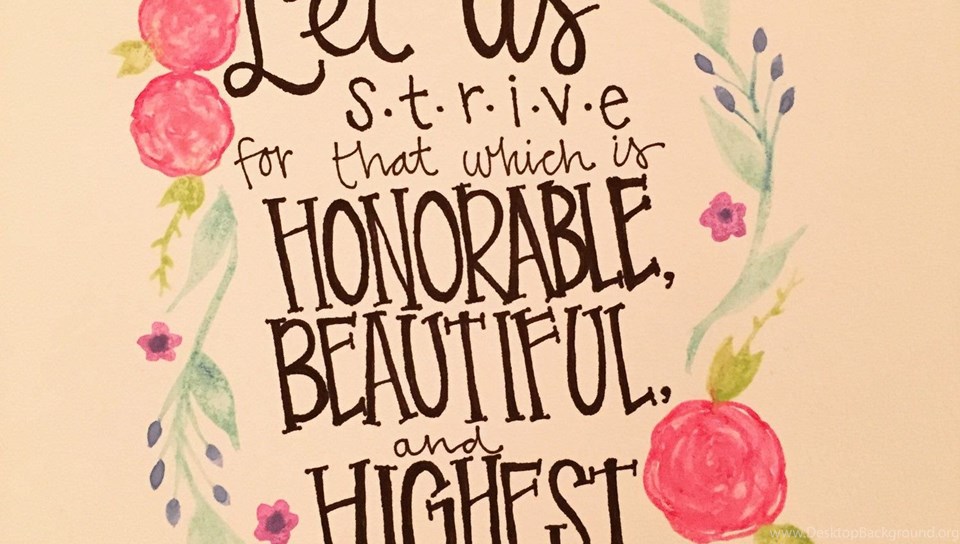 Let us
s.t.r.i.v.e
for that which is
HONORABLE,
BEAUTIFUL,
and
HIGHEST
www.DesktopBackground.org